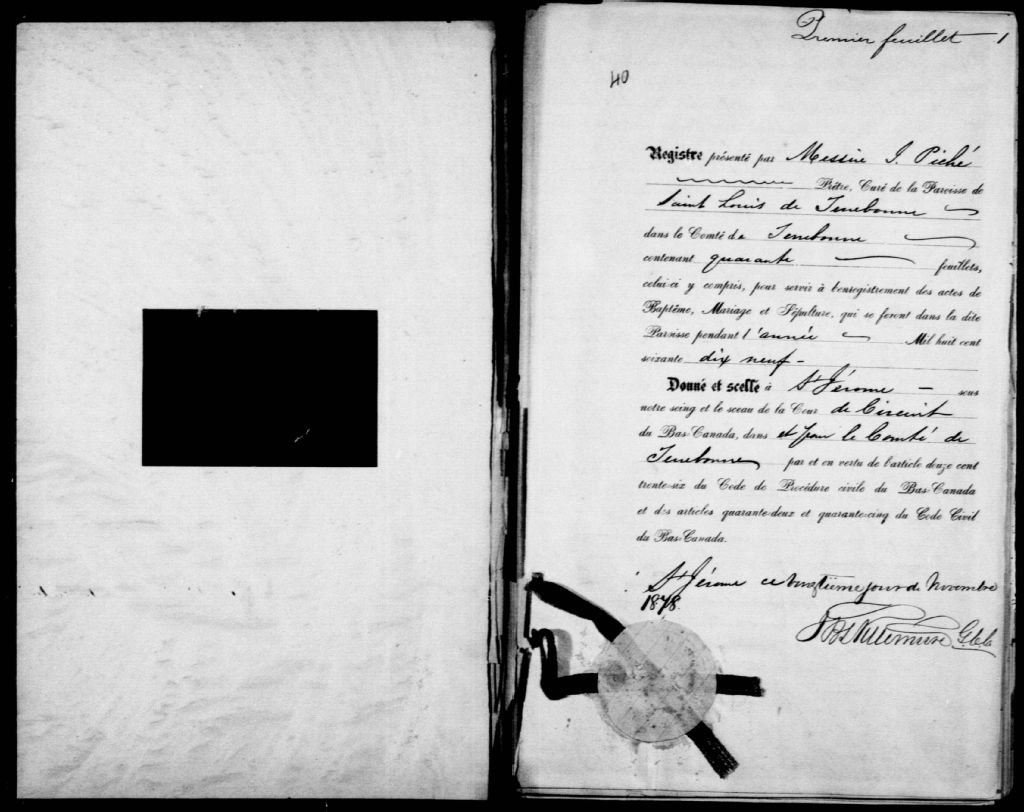 Premier feuillet 1
40
Registre présenté par Messire J. Piché
Prêtre, Curé de la Paroisse de
Saint Louis de Terrebonne
dans le Comté de Terrebonne
contenant quarante feuillets,
celui-ci y compris, pour servir à l'enregistrement des actes de
Baptême, Mariage et Sépulture, qui se feront dans la dite
Paroisse pendant l'année Mil huit cent
soixante dix neuf -
Donné et scellé à St Jérome - sous
notre seing et le sceau de la Cour de Circuit
du Bas-Canada, dans et pour le Comté de
Terrebonne par et en vertu de l'article douze cent
trente-six du Code de Procédure civile du Bas-Canada
et des articles quarante-deux et quarante-cinq du Code Civil
du Bas-Canada.
St Jérome ce vingtième jour de Novembre
1878.
G.C.C.